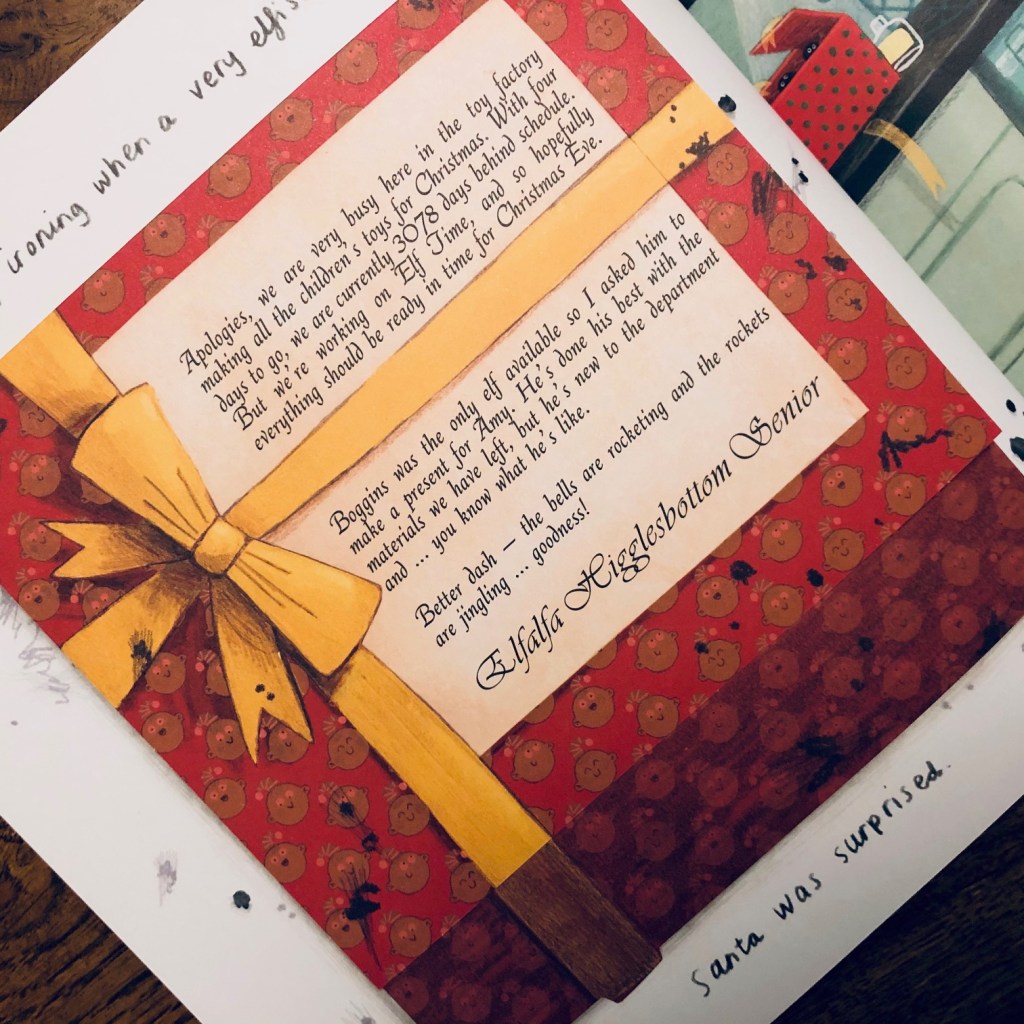 ironing when a very elfis
Apologies, we are very, busy here in the toy factory
making all the children's toys for Christmas. With four
days to go, we are currently 3078 days behind schedule.
But we're working on 'Elf Time, and so hopefully
everything should be ready in time for Christmas Eve.
Boggins was the only elf available so I asked him to
make a present for Amy. He's done his best with the
materials we have left, but he's new to the department
and ... you know what he's like.
Better dash – the bells are rocketing and the rockets
are jingling ... goodness!
Elfalfa Higglesbottom Senior
Santa was surprised.